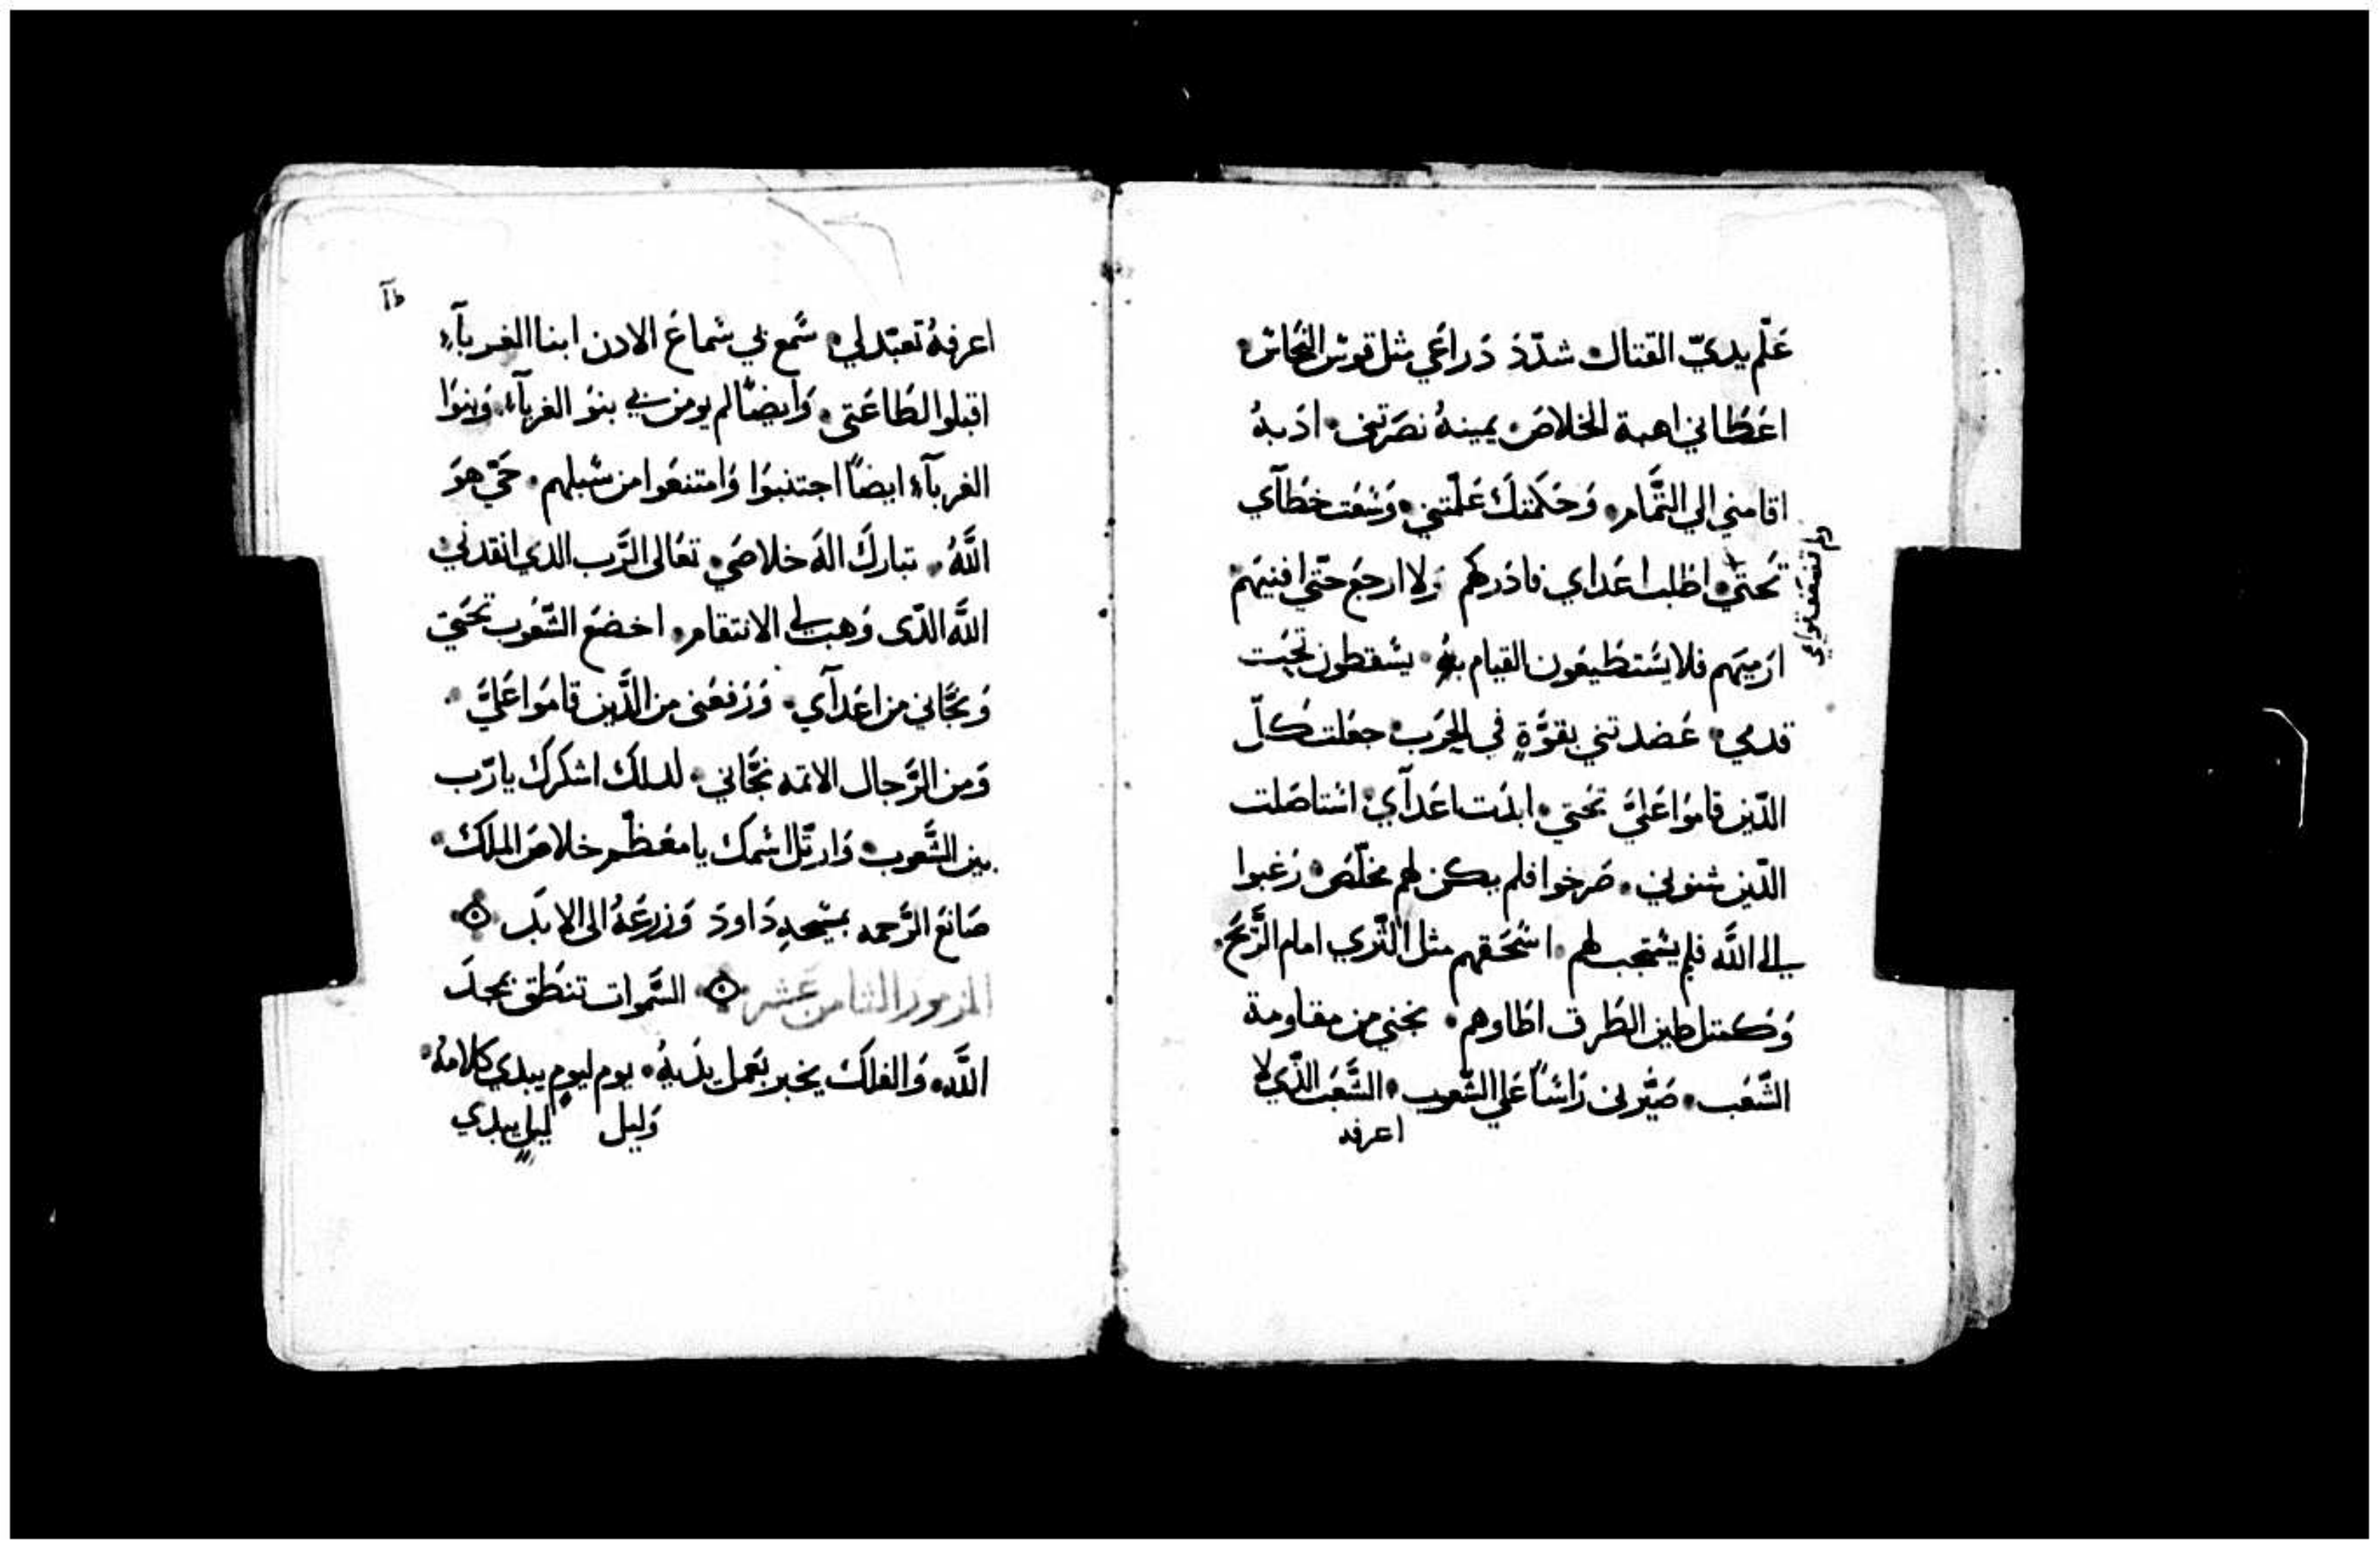 عَلّم يديّ القتال شدّدَ دَراعَي مثل قوسٌ النحَاسٌ
اعَطَاني اهبة الخلاصَ يمينهُ نصَرَتني ادَبهُ
اقامني الي التَّمَام وَحَكمَتكَ عَلّمتني وَسَّعَت خطَآي
تَحتيَ اطلب اعَداي فادَركهم وَلا ارجعَ حَتّي افنيهَم
ولم تضعف قواي
ارَميهَم فلا يسَتطَيعَون القيام بهُ يسَقطون تحَت
قدمي عَضدتني بقوَّةٍ في الحرَب جعَلت كلّ
الدّين قاموَا عَليَّ تَحَتي ابدَت اعَدآي اسَتاصَلت
الدّين شنوني صَرخوا فلم يكن لهم مخلّصَ رَغبوا
الي اللَّه فلم يسَتجب لهم اسَحَقهم مثل الثّري امام الرَّيحَ
وَكمتل طين الطَرق اطَاوهم نجني من مقاومة
الشّعَب صَيَّرني رَاسَاً عَلي الشّعَوب الشَّعَب الذّي لا
اعرفه
طآ
اعرفهُ تعَبّد لي سَّمع لي سَماعَ الادن ابنا الغربآء
اقبلوا لطَاعَتي وَايضَاً لم يومن بي بنوَ الغربآء وَبنوَا
الغربآء ايضَاً اجتنبوَا وَامتنعَوا من سَبلهم حَيّ هوَ
اللَّهُ تباركَ الهَ خلاصَي تعَالى الرَّب الدي انقدني
اللَّه الدّى وَهب لي الانتقام اخضعَ الشّعَوب تَحَتي
وَنجَّاني من اعَدآي وَرَفعَني من الدَّين قاموَا عَليَّ
وَمن الرَّجال الاتمه نجّاني لدلك اشكرك يا رَّب
بين الشَّعَوب وَارتّل اسَمك يا معَظّم خلاصَ الملك
صَانعَ الرَّحمه بمسَيحهِ دَاودَ وَزرعَهُ الى الابدَ
المزمور الثامن عَشر السَّموات تنطَق بمجدَ
اللَّه وَالفلك يخبر بعَمل يدَيهُ يوم ليومٍ يبدي كلامهُ
وَليل ليلٍ يبدي